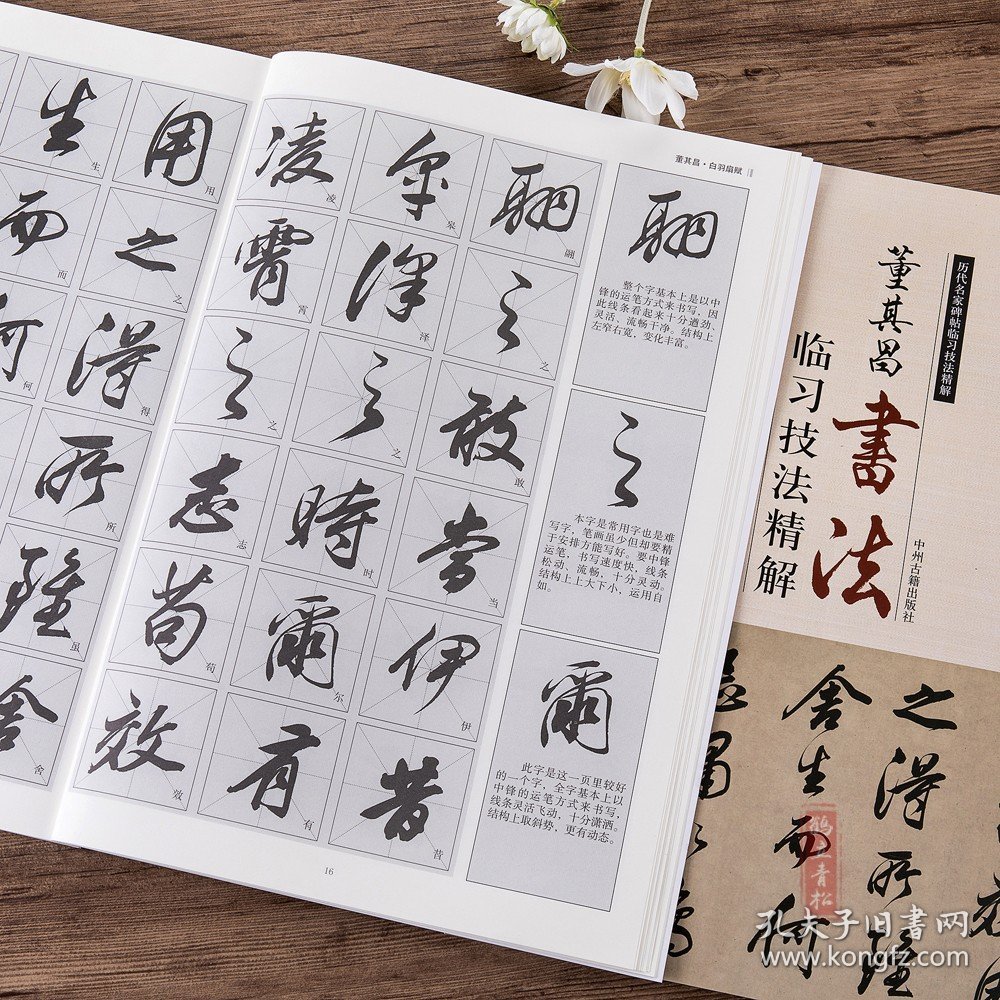 生
生
用
用
而
而
之
之
何
何
得
得
所
所
雖
虽
舍
舍
董其昌·白羽扇赋
翩
翩
之
之
敢
敢
当
當
伊
伊
昔
昔
皋
皋
澤
泽
之
之
時
时
爾
尔
有
有
凌
凌
霄
霄
之
之
志
志
苟
荀
效
效
翩
整个字基本上是以中
锋的运笔方式来书写,因
此线条看起来十分遒劲、
灵活、流畅干净。结构上
左窄右宽,变化丰富。
之
本字是常用字也是难
写字,笔画虽少但却要精
于安排方能写好。要中锋
运笔,书写速度快,线条
松动、流畅,十分灵动。
结构上上大下小,运用自
如。
爾
此字是这一页里较好
的一个字,全字基本上以
中锋的运笔方式来书写,
线条灵活飞动,十分潇洒。
结构上取斜势,更有动态。
16
历代名家碑帖临习技法精解
董其昌
書法
临习技法精解
中州古籍出版社
之得所雖
舍生而何
青松
孔夫子旧书网
www.kongfz.com